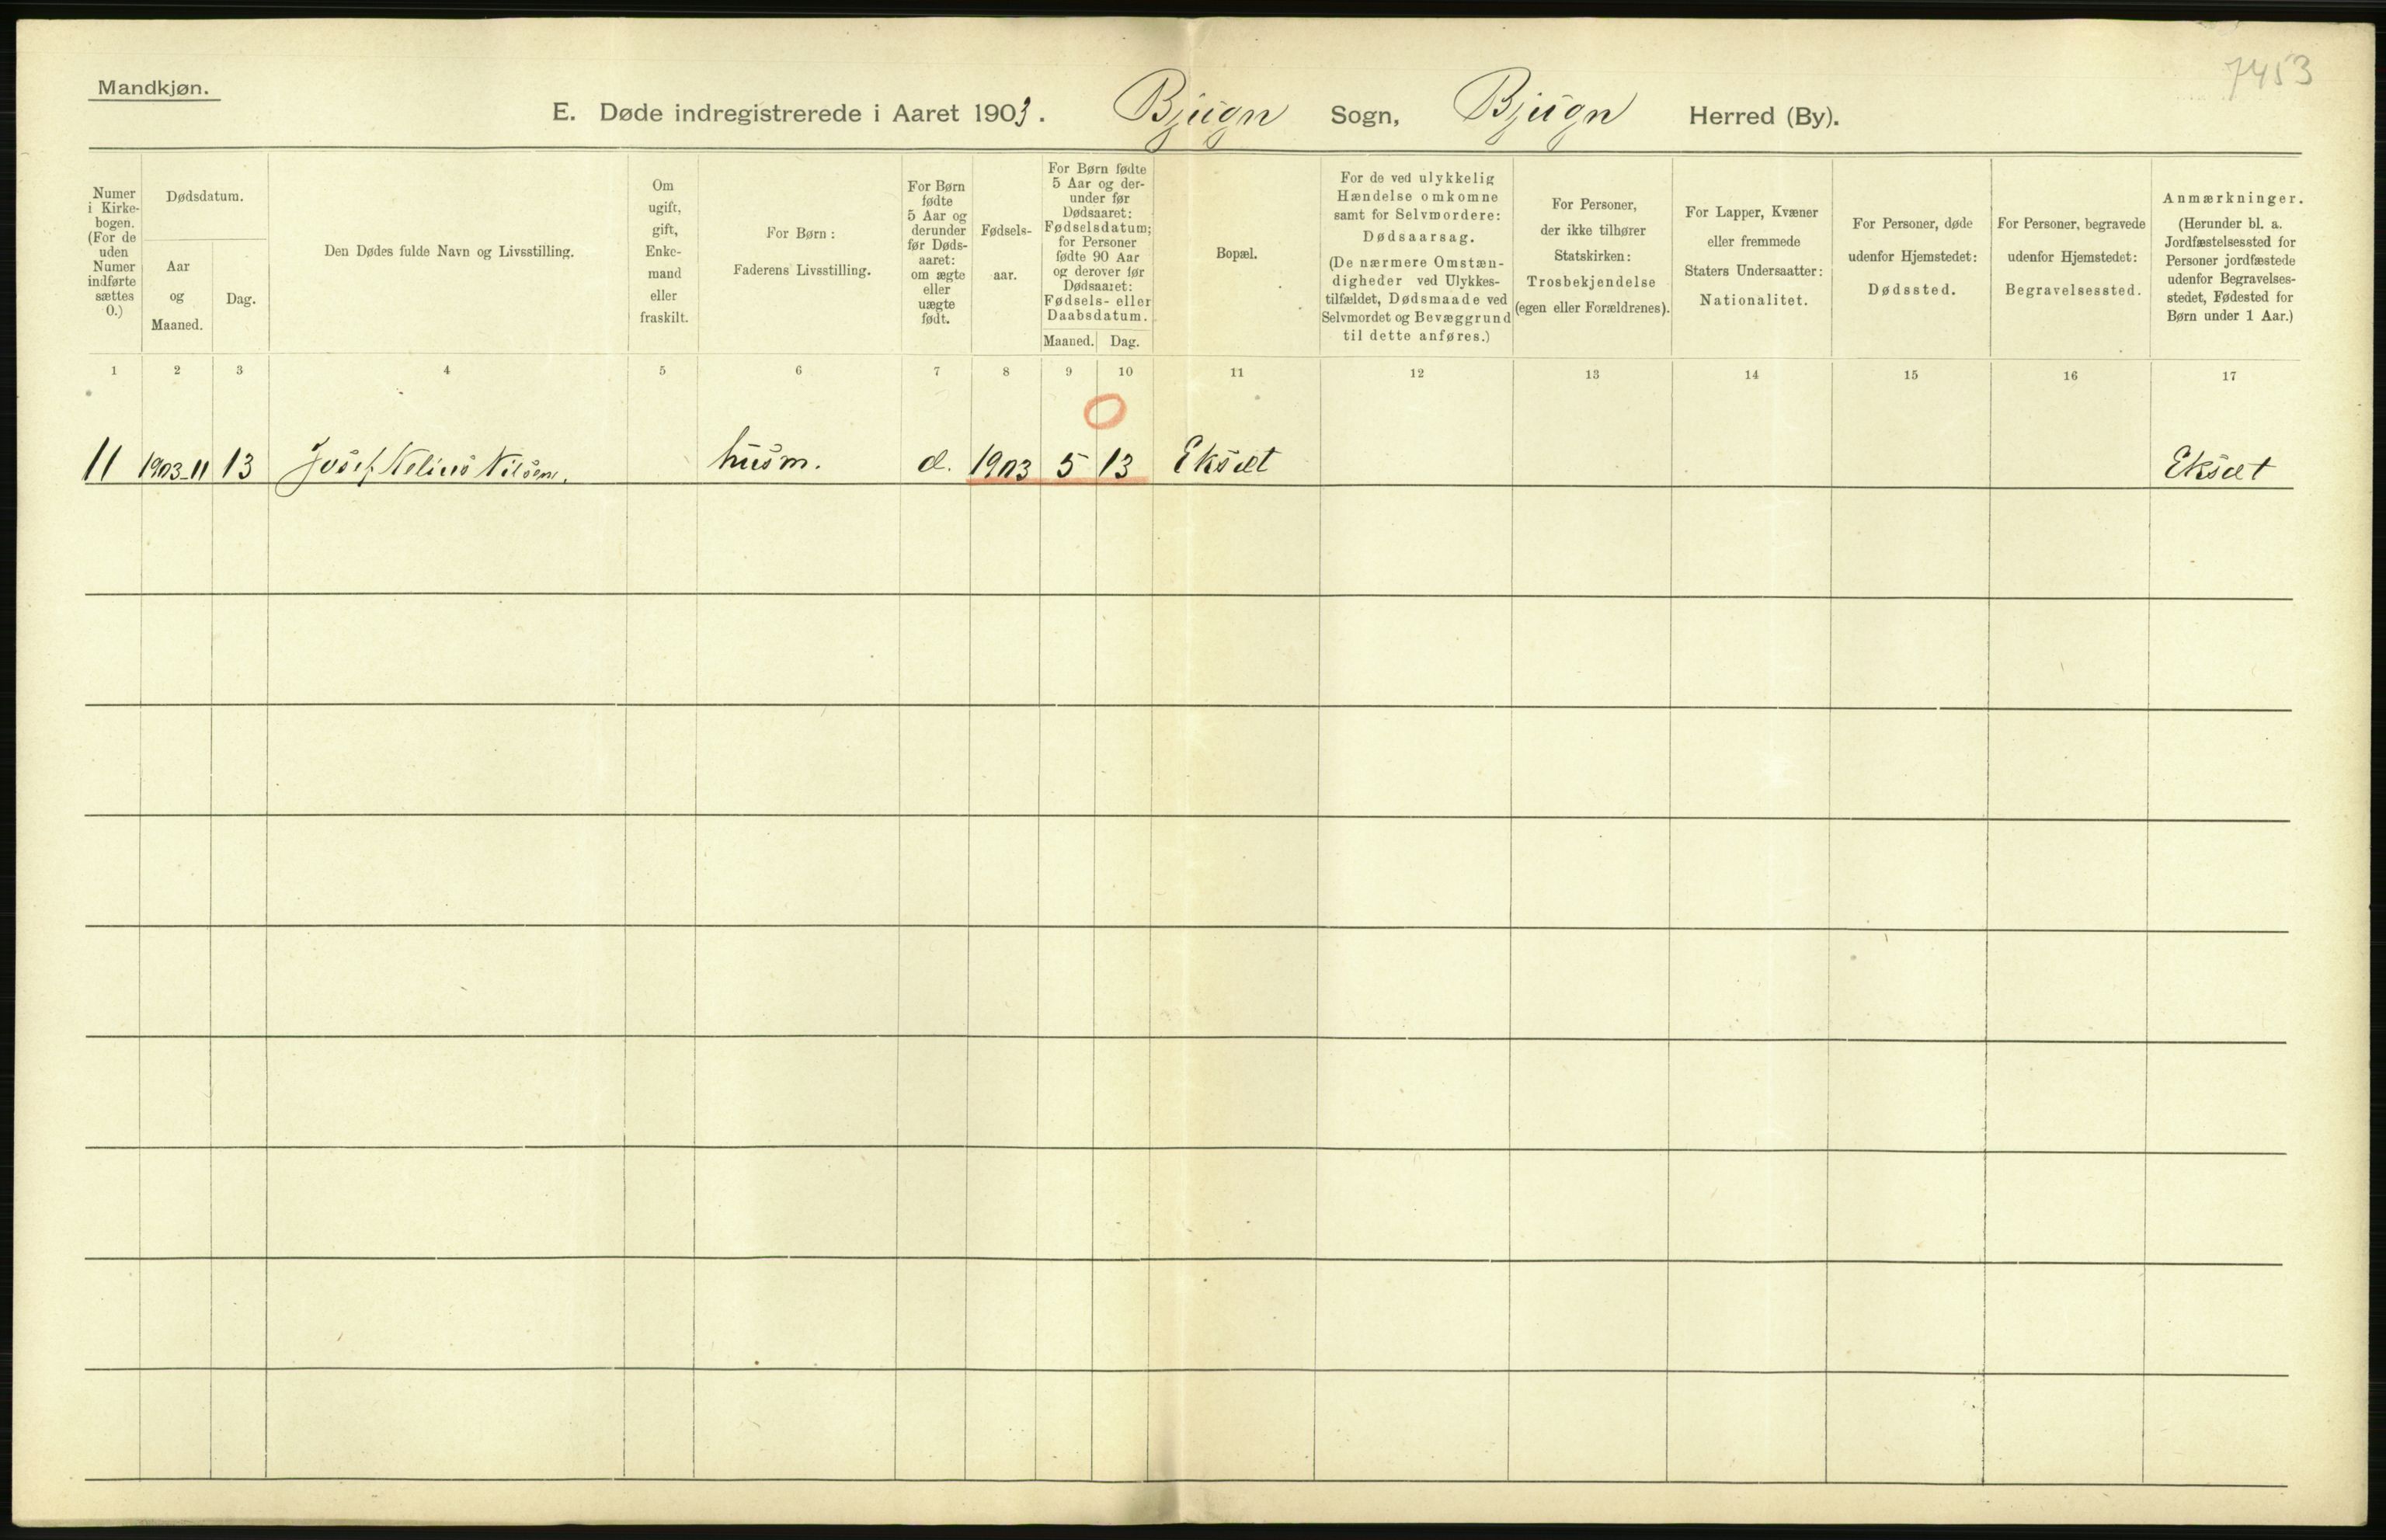 7453
Mandkjøn.
E. Døde indregistrerede i Aaret 1903. Bjugn Sogn, Bjugn Herred (By).
Numer
i Kirke-
bogen.
(For de
uden
Numer
indførte
sættes
0.)
Dødsdatum.
Aar
og
Maaned.
Dag.
Den Dødes fulde Navn og Livsstilling.
Om
ugift,
gift,
Enke-
mand
eller
fraskilt.
For Børn:
Faderens Livsstilling.
For Børn
fødte
5 Aar og
derunder
før Døds-
aaret:
om ægte
eller
uægte
født.
Fødsels-
aar.
For Børn fødte
5 Aar og der-
under før
Dødsaaret:
Fødselsdatum;
for Personer
fødte 90 Aar
og derover før
Dødsaaret:
Fødsels- eller
Daabsdatum.
Maaned. Dag.
Bopæl.
For de ved ulykkelig
Hændelse omkomne
samt for Selvmordere:
Dødsaarsag.
(De nærmere Omstæn-
digheder ved Ulykkes-
tilfældet, Dødsmaade ved
Selvmordet og Bevæggrund
til dette anføres.)
For Personer,
der ikke tilhører
Statskirken:
Trosbekjendelse
(egen eller Forældrenes).
For Lapper, Kvæner
eller fremmede
Staters Undersaatter:
Nationalitet.
For Personer, døde
udenfor Hjemstedet:
Dødssted.
For Personer, begravede
udenfor Hjemstedet:
Begravelsessted.
Anmærkninger.
(Herunder bl. a.
Jordfæstelsessted for
Personer jordfæstede
udenfor Begravelses-
stedet, Fødested for
Børn under 1 Aar.)
1 2 3 4 5 6 7 8 9 10 11 12 13 14 15 16 17
0
11 1903-11 13 Josef Nelius Nilsen. husm. d. 1903 5 13 Eksæt Eksæt